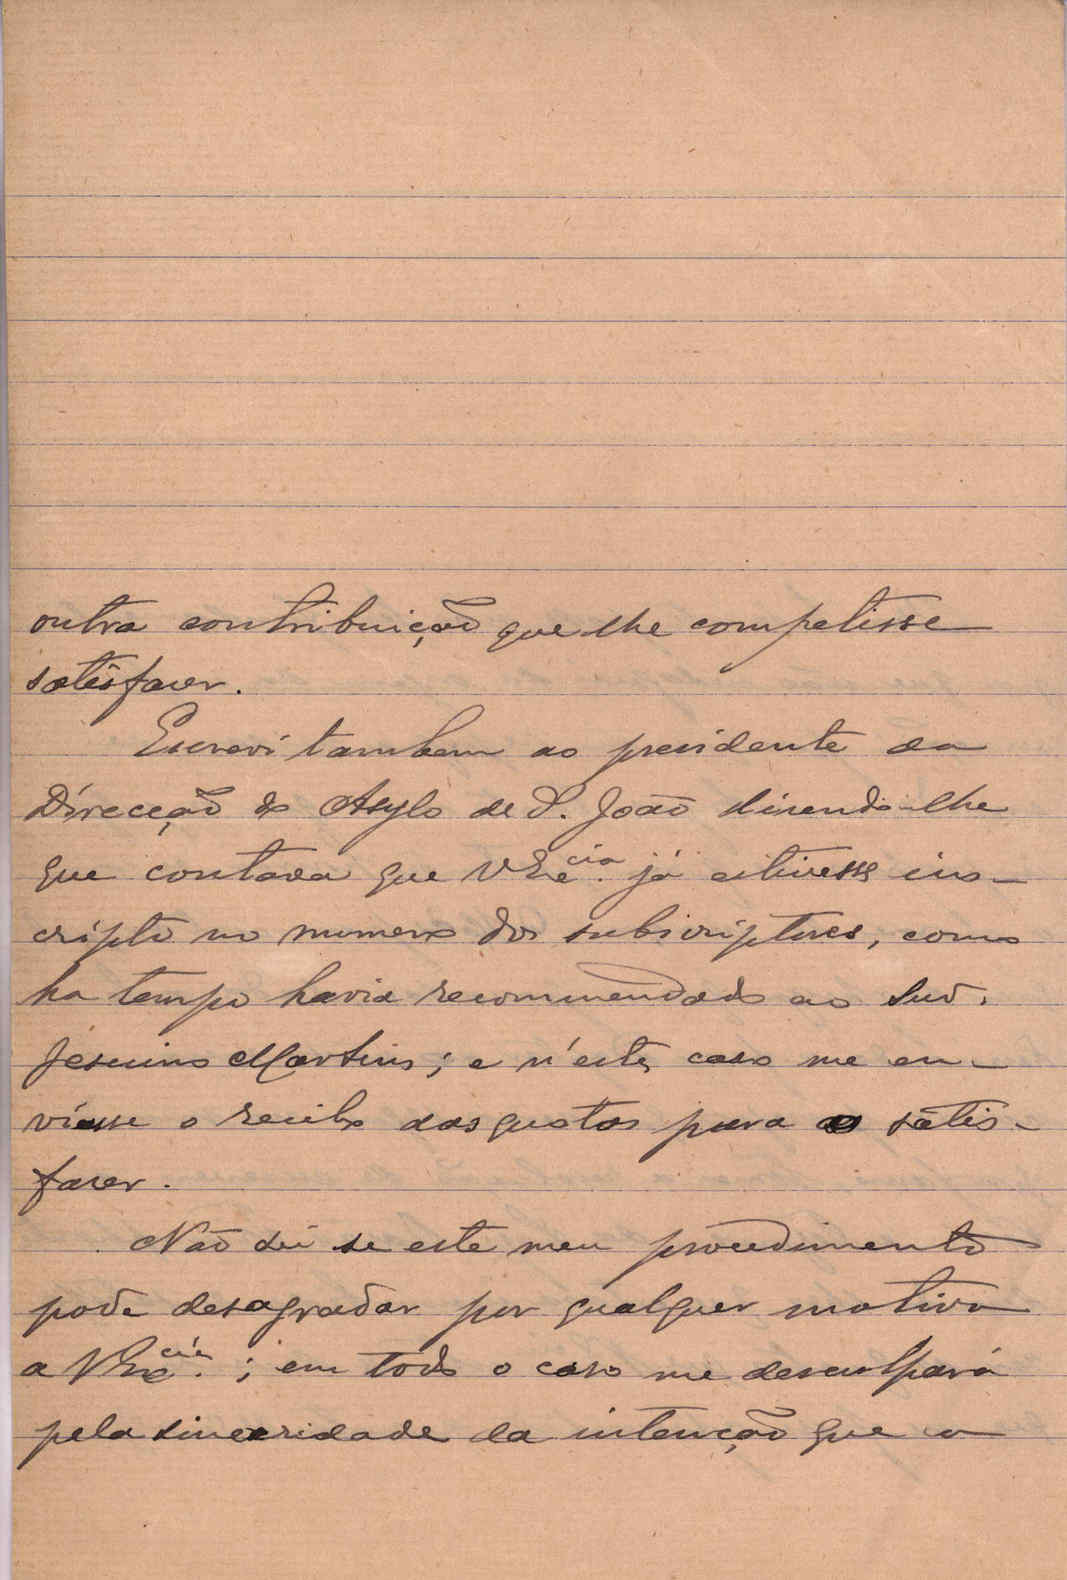 outra contribuição que lhe competisse
satisfazer.
Escrevi tambem ao presidente da
Direcção do Asylo de S. João dizendo-lhe
que contava que VExcia. já estivesse ins-
cripto no numero dos subscriptores, como
ha tempo havia recommendado ao Snr.
Jesuino Martins; e n'este caso me en-
viasse o recibo das quotas para as satis-
fazer.
Não sei se este meu procedimento
pode desagradar por qualquer motivo
a VExcia.; em todo o caso me desculpará
pela sinceridade da intenção que a